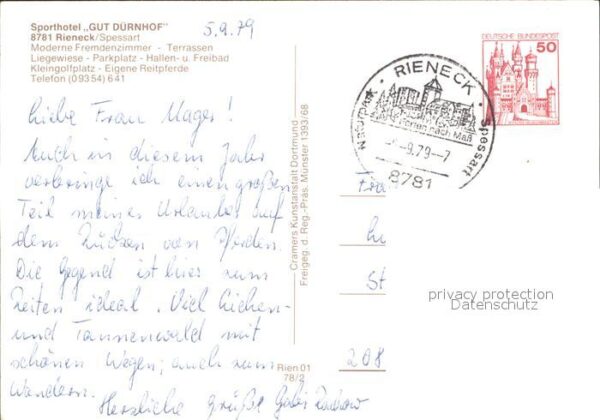 Sporthotel „GUT DÜRNHOF"
8781 Rieneck/Spessart
Moderne Fremdenzimmer - Terrassen
Liegewiese - Parkplatz - Hallen- u. Freibad
Kleingolfplatz - Eigene Reitpferde
Telefon (09354) 641
5.9.79
Liebe Frau Mager!
Auch in diesem Jahr
verbringe ich einen großen
Teil meines Urlaubes auf
dem Rücken von Pferden.
Die Gegend ist hier zum
Reiten ideal. Viel Eichen-
und Tannenwald mit
schönen Wegen; auch zum
Wandern.
Herzliche Grüße Gabi
Cramers Kunstanstalt Dortmund
Freigeg. d. Reg.-Präs. Münster 1393/68
Rien 01
78/2
DEUTSCHE BUNDESPOST
50
RIENECK
Naturpark Spessart
Ferien nach Maß
-9.79--7
8781
Fra
Lu
St
208
privacy protection
Datenschutz